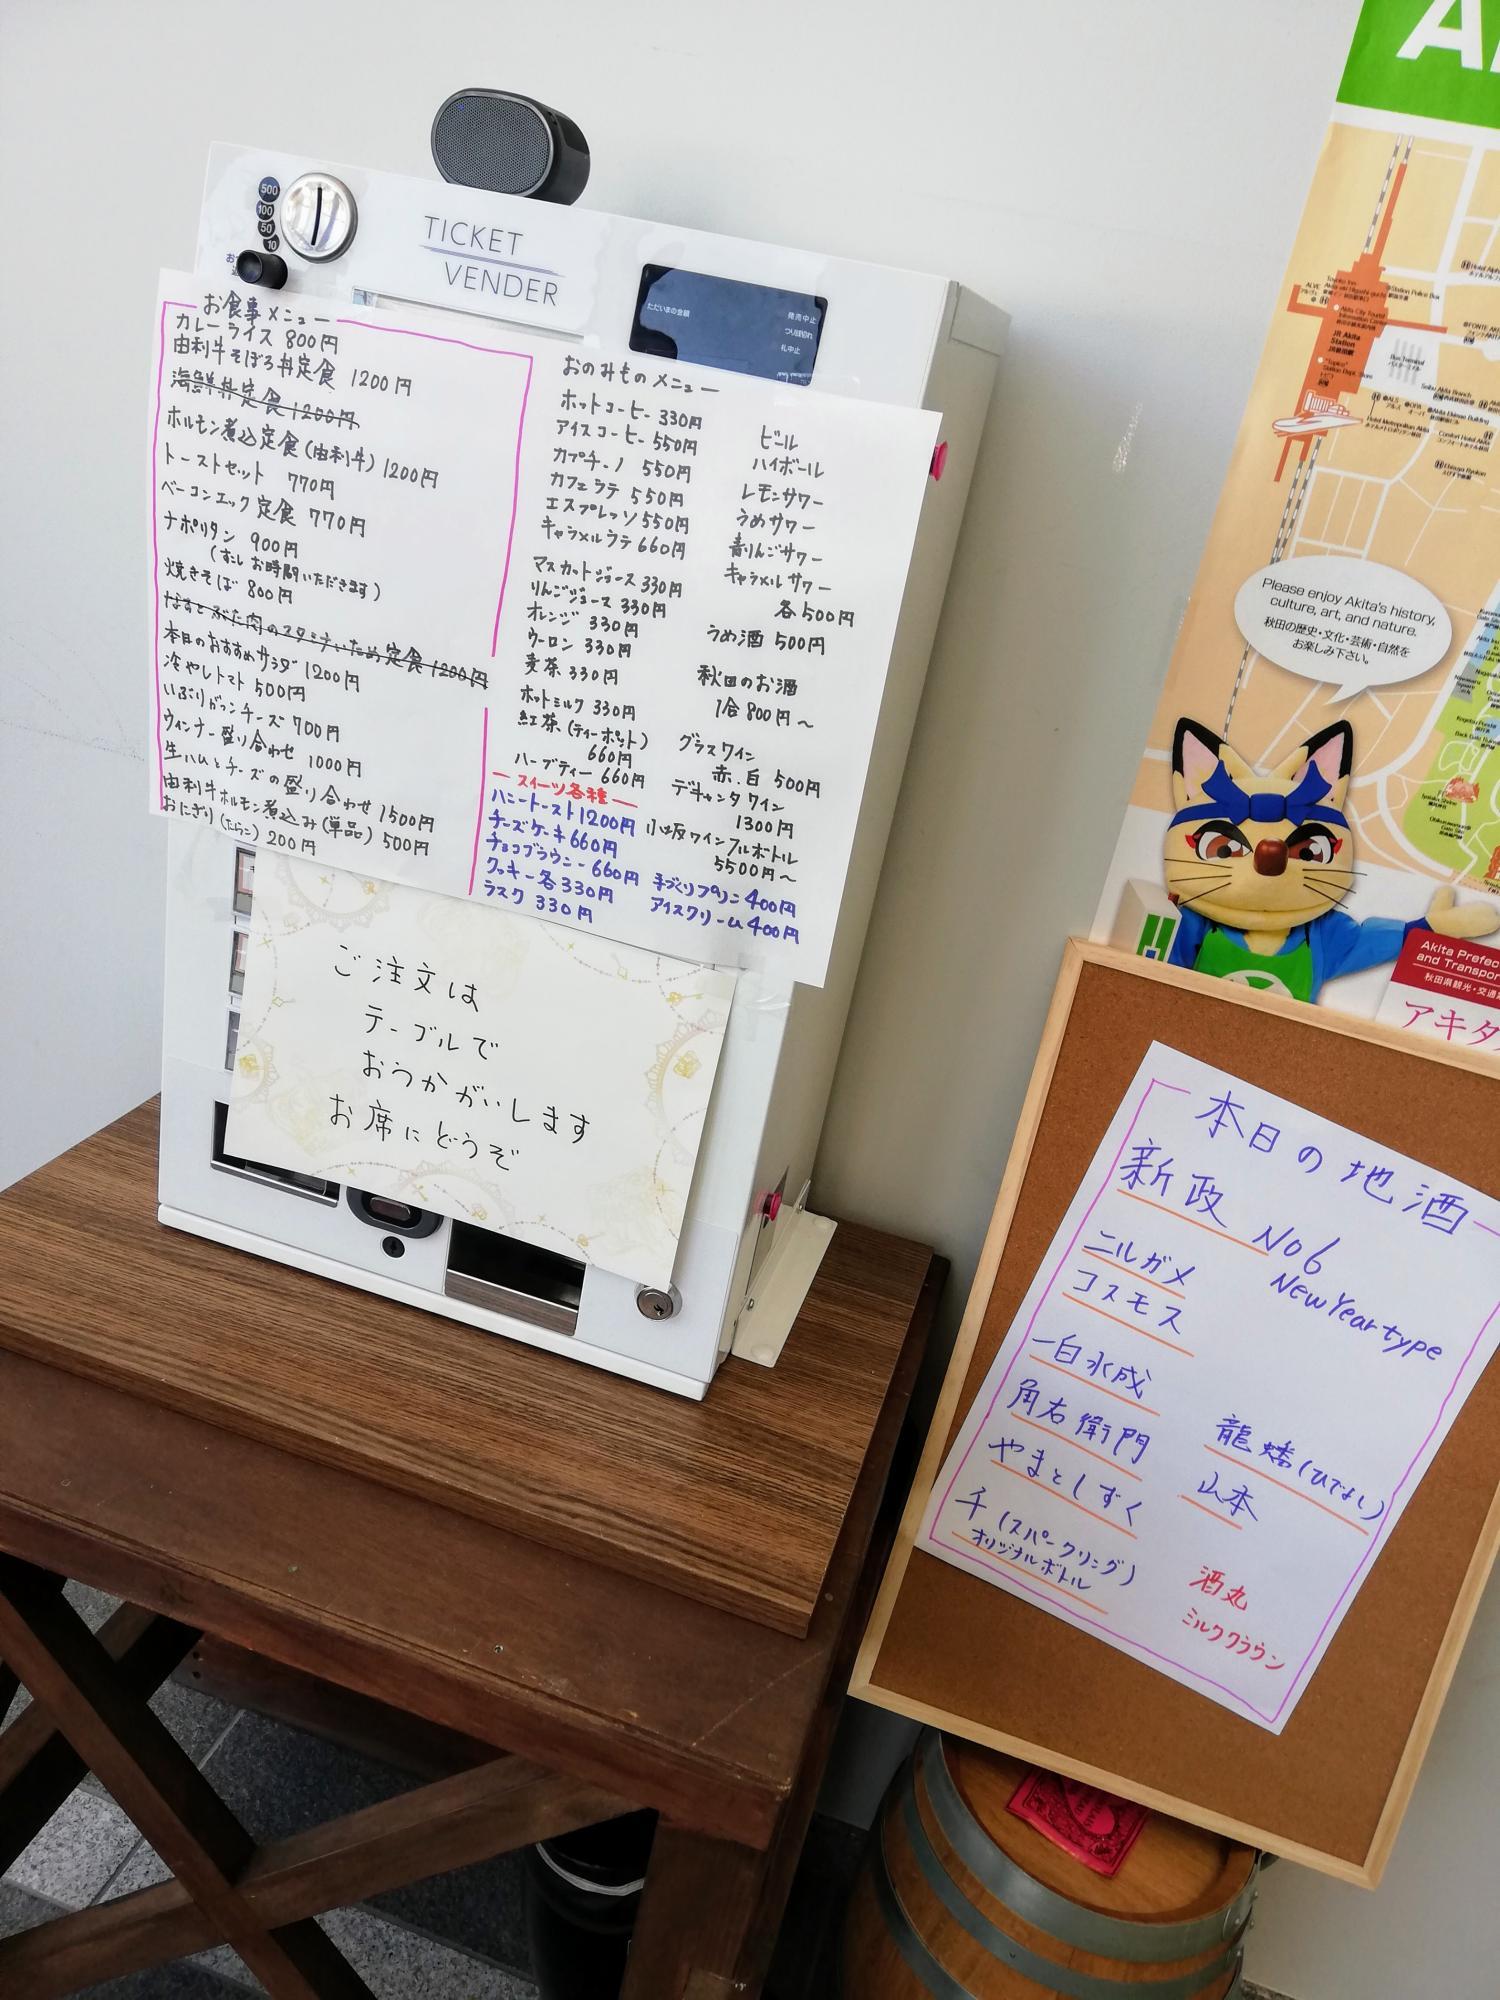 500
100
50
10
TICKET
VENDER
ただいまの金額
発売中止
つり銭切れ
札中止
お食事メニュー
カレーライス 800円
由利牛そぼろ丼定食 1200円
海鮮丼定食 1200円
ホルモン煮込定食(由利牛) 1200円
トーストセット 770円
ベーコンエッグ定食 770円
ナポリタン 900円
(すこしお時間いただきます)
焼きそば 800円
なすとぶた肉のスタミナいため定食 1200円
本日のおすすめサラダ 1200円
冷やしトマト 500円
いぶりがっこチーズ 700円
ウィンナー盛り合わせ 1000円
生ハムとチーズの盛り合わせ 1500円
由利牛ホルモン煮込み(単品) 500円
おにぎり(たらこ) 200円
おのみものメニュー
ホットコーヒー 330円
アイスコーヒー 550円
カプチーノ 550円
カフェラテ 550円
エスプレッソ 550円
キャラメルラテ 660円
マスカットジュース 330円
りんごジュース 330円
オレンジ 330円
ウーロン 330円
麦茶 330円
ホットミルク 330円
紅茶(ティーポット)
660円
ハーブティー 660円
スイーツ各種
ハニートースト 1200円
チーズケーキ 660円
チョコブラウニー 660円
クッキー各 330円
ラスク 330円
ビール
ハイボール
レモンサワー
うめサワー
青りんごサワー
キャラメルサワー
各500円
うめ酒 500円
秋田のお酒
1合 800円~
グラスワイン
赤、白 500円
デキャンタワイン
1300円
小坂ワインフルボトル
5500円~
手づくりプリン 400円
アイスクリーム 400円
ご注文は
テーブルで
おうかがいします
お席にどうぞ
Please enjoy Akita's history,
culture, art, and nature.
秋田の歴史・文化・芸術・自然を
お楽しみ下さい。
JR Akita
Station
Akita Prefec
and Transpor
秋田県観光・交通
アキタ
本日の地酒
新政 No6
New Year type
ニルガメ
コスモス
一白水成
角右衛門
やまとしずく
千(スパークリング)
オリジナルボトル
龍蟠(ひでよし)
山本
酒丸
ミルククラウン